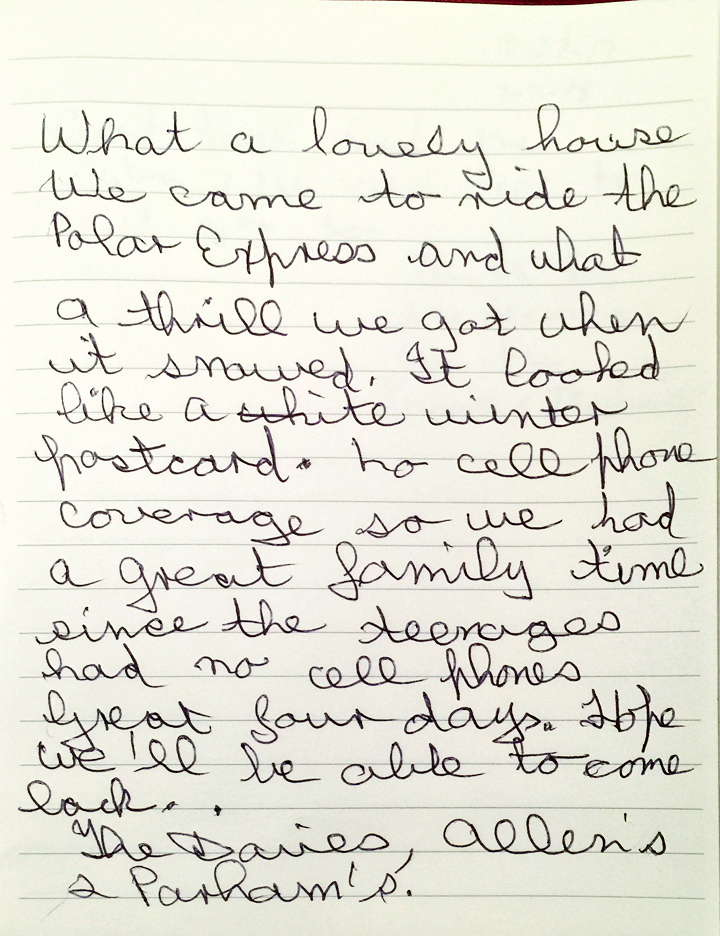 What a lovely house
We came to ride the
Polar Express and what
a thrill we got when
it snowed. It looked
like a white winter
postcard. No cell phone
coverage so we had
a great family time
since the teenages
had no cell phones
Great four days. Hope
we'll be able to come
back. .
The Davies, Allen's
& Parham's.